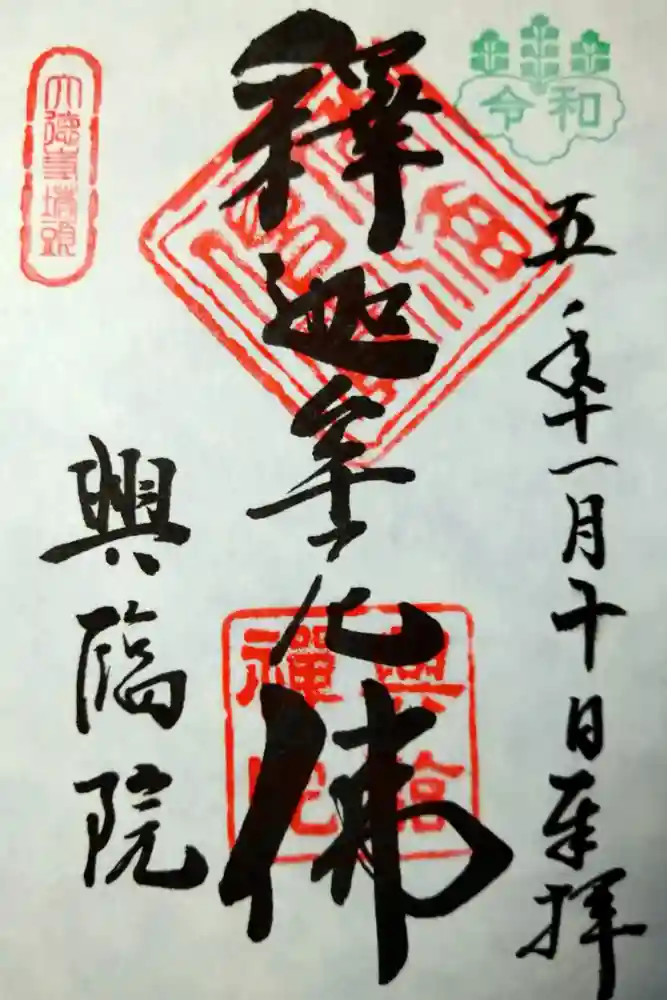 令和
五年十一月十日奉拝
釋迦牟尼佛
興臨
禪院
大德寺塔頭
興臨院